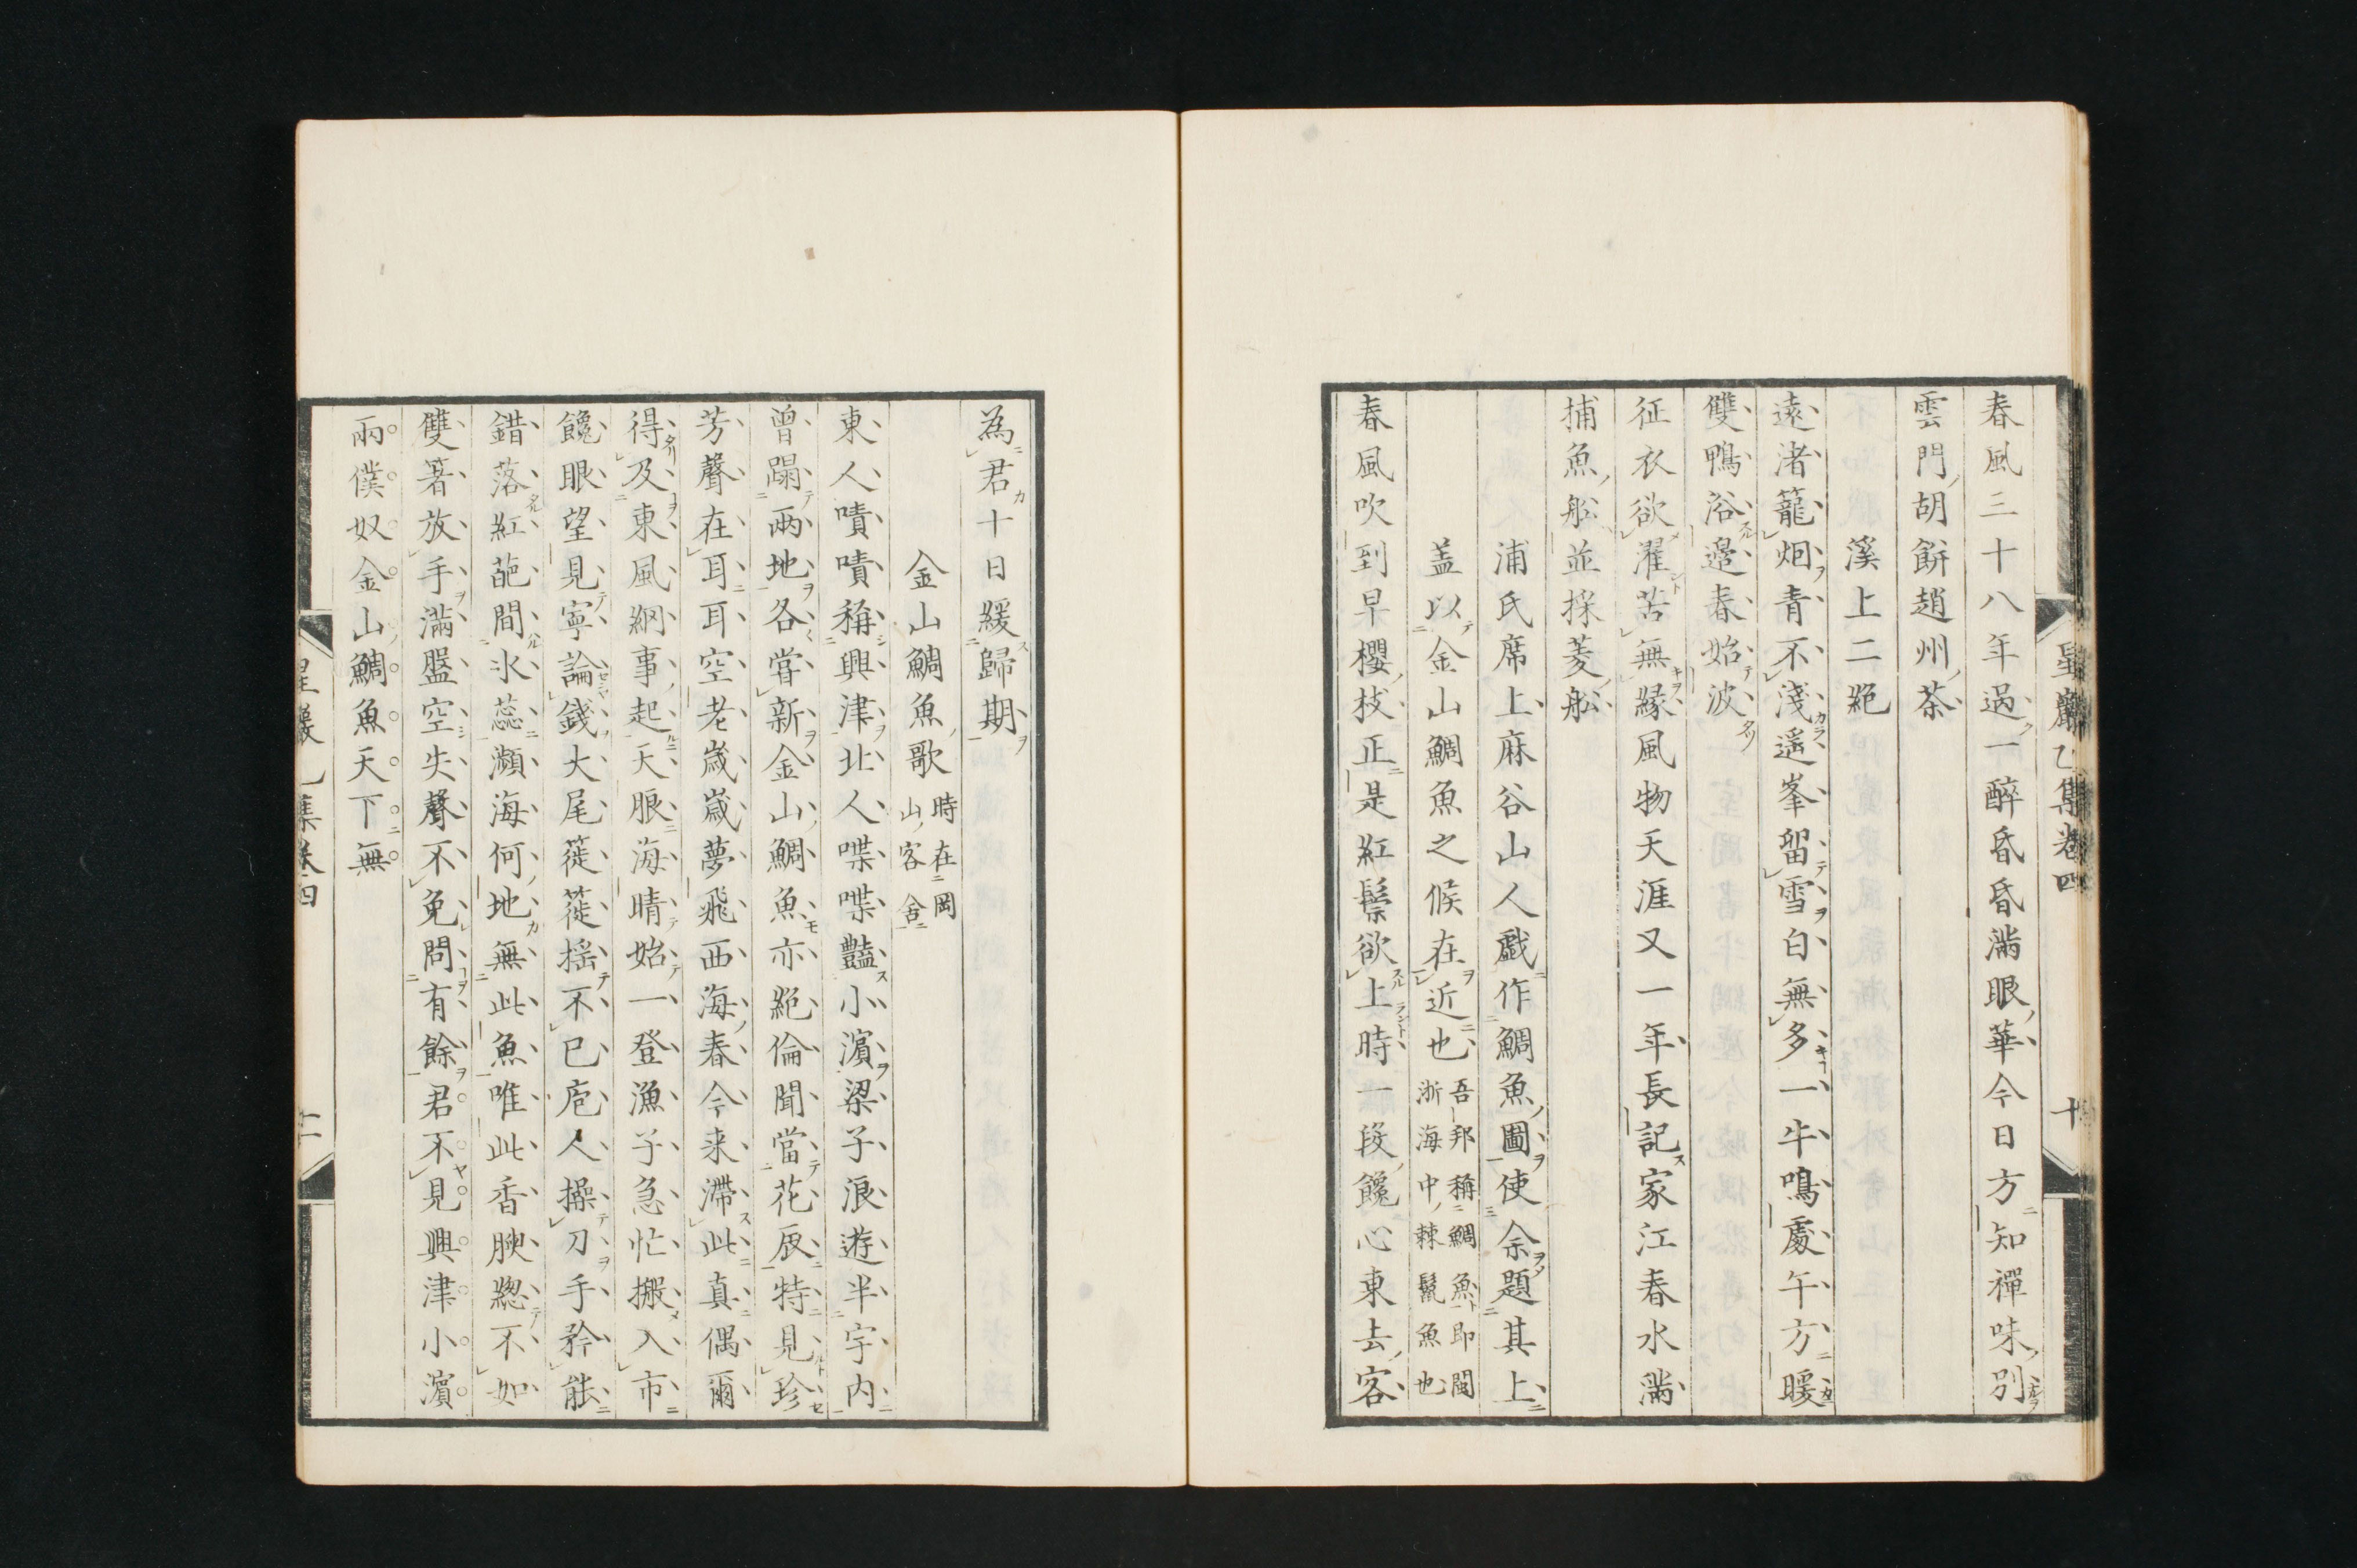 春風三十八年過一醉昏昏滿眼華今日方知禪味別
雲門胡餅趙州茶
溪上二絶
遠渚籠烟青不淺遥峯留雪白無多一牛鳴處午方暖
雙鴨浴邊春始波
征衣欲濯苦無緣風物天涯又一年長記家江春水滿
捕魚船並採菱船
浦氏席上麻谷山人戲作鯛魚圖使余題其上
盖以金山鯛魚之候在近也吾邦稱鯛魚即閩浙海中棘鬣魚也
春風吹到早櫻枝正是紅鬃欲上時一段饞心東去客
星巖乙集卷四
十
為君十日緩歸期
金山鯛魚歌時在岡山客舍
東人嘖嘖稱興津北人喋喋豔小濵梁子浪遊半宇内
曾蹋兩地各嘗新金山鯛魚亦絶倫聞當花辰特見珍
芳聲在耳耳空老歲歲夢飛西海春今来滯此真偶爾
得及東風網事起天脹海晴始一登漁子急忙搬入市
饞眼望見寧論錢大尾蓰蓰摇不已庖人操刀手矜能
錯落紅葩間氷蕊瀕海何地無此魚唯此香腴總不如
雙箸放手滿盤空失聲不免問有餘君不見興津小濵
兩僕奴金山鯛魚天下無